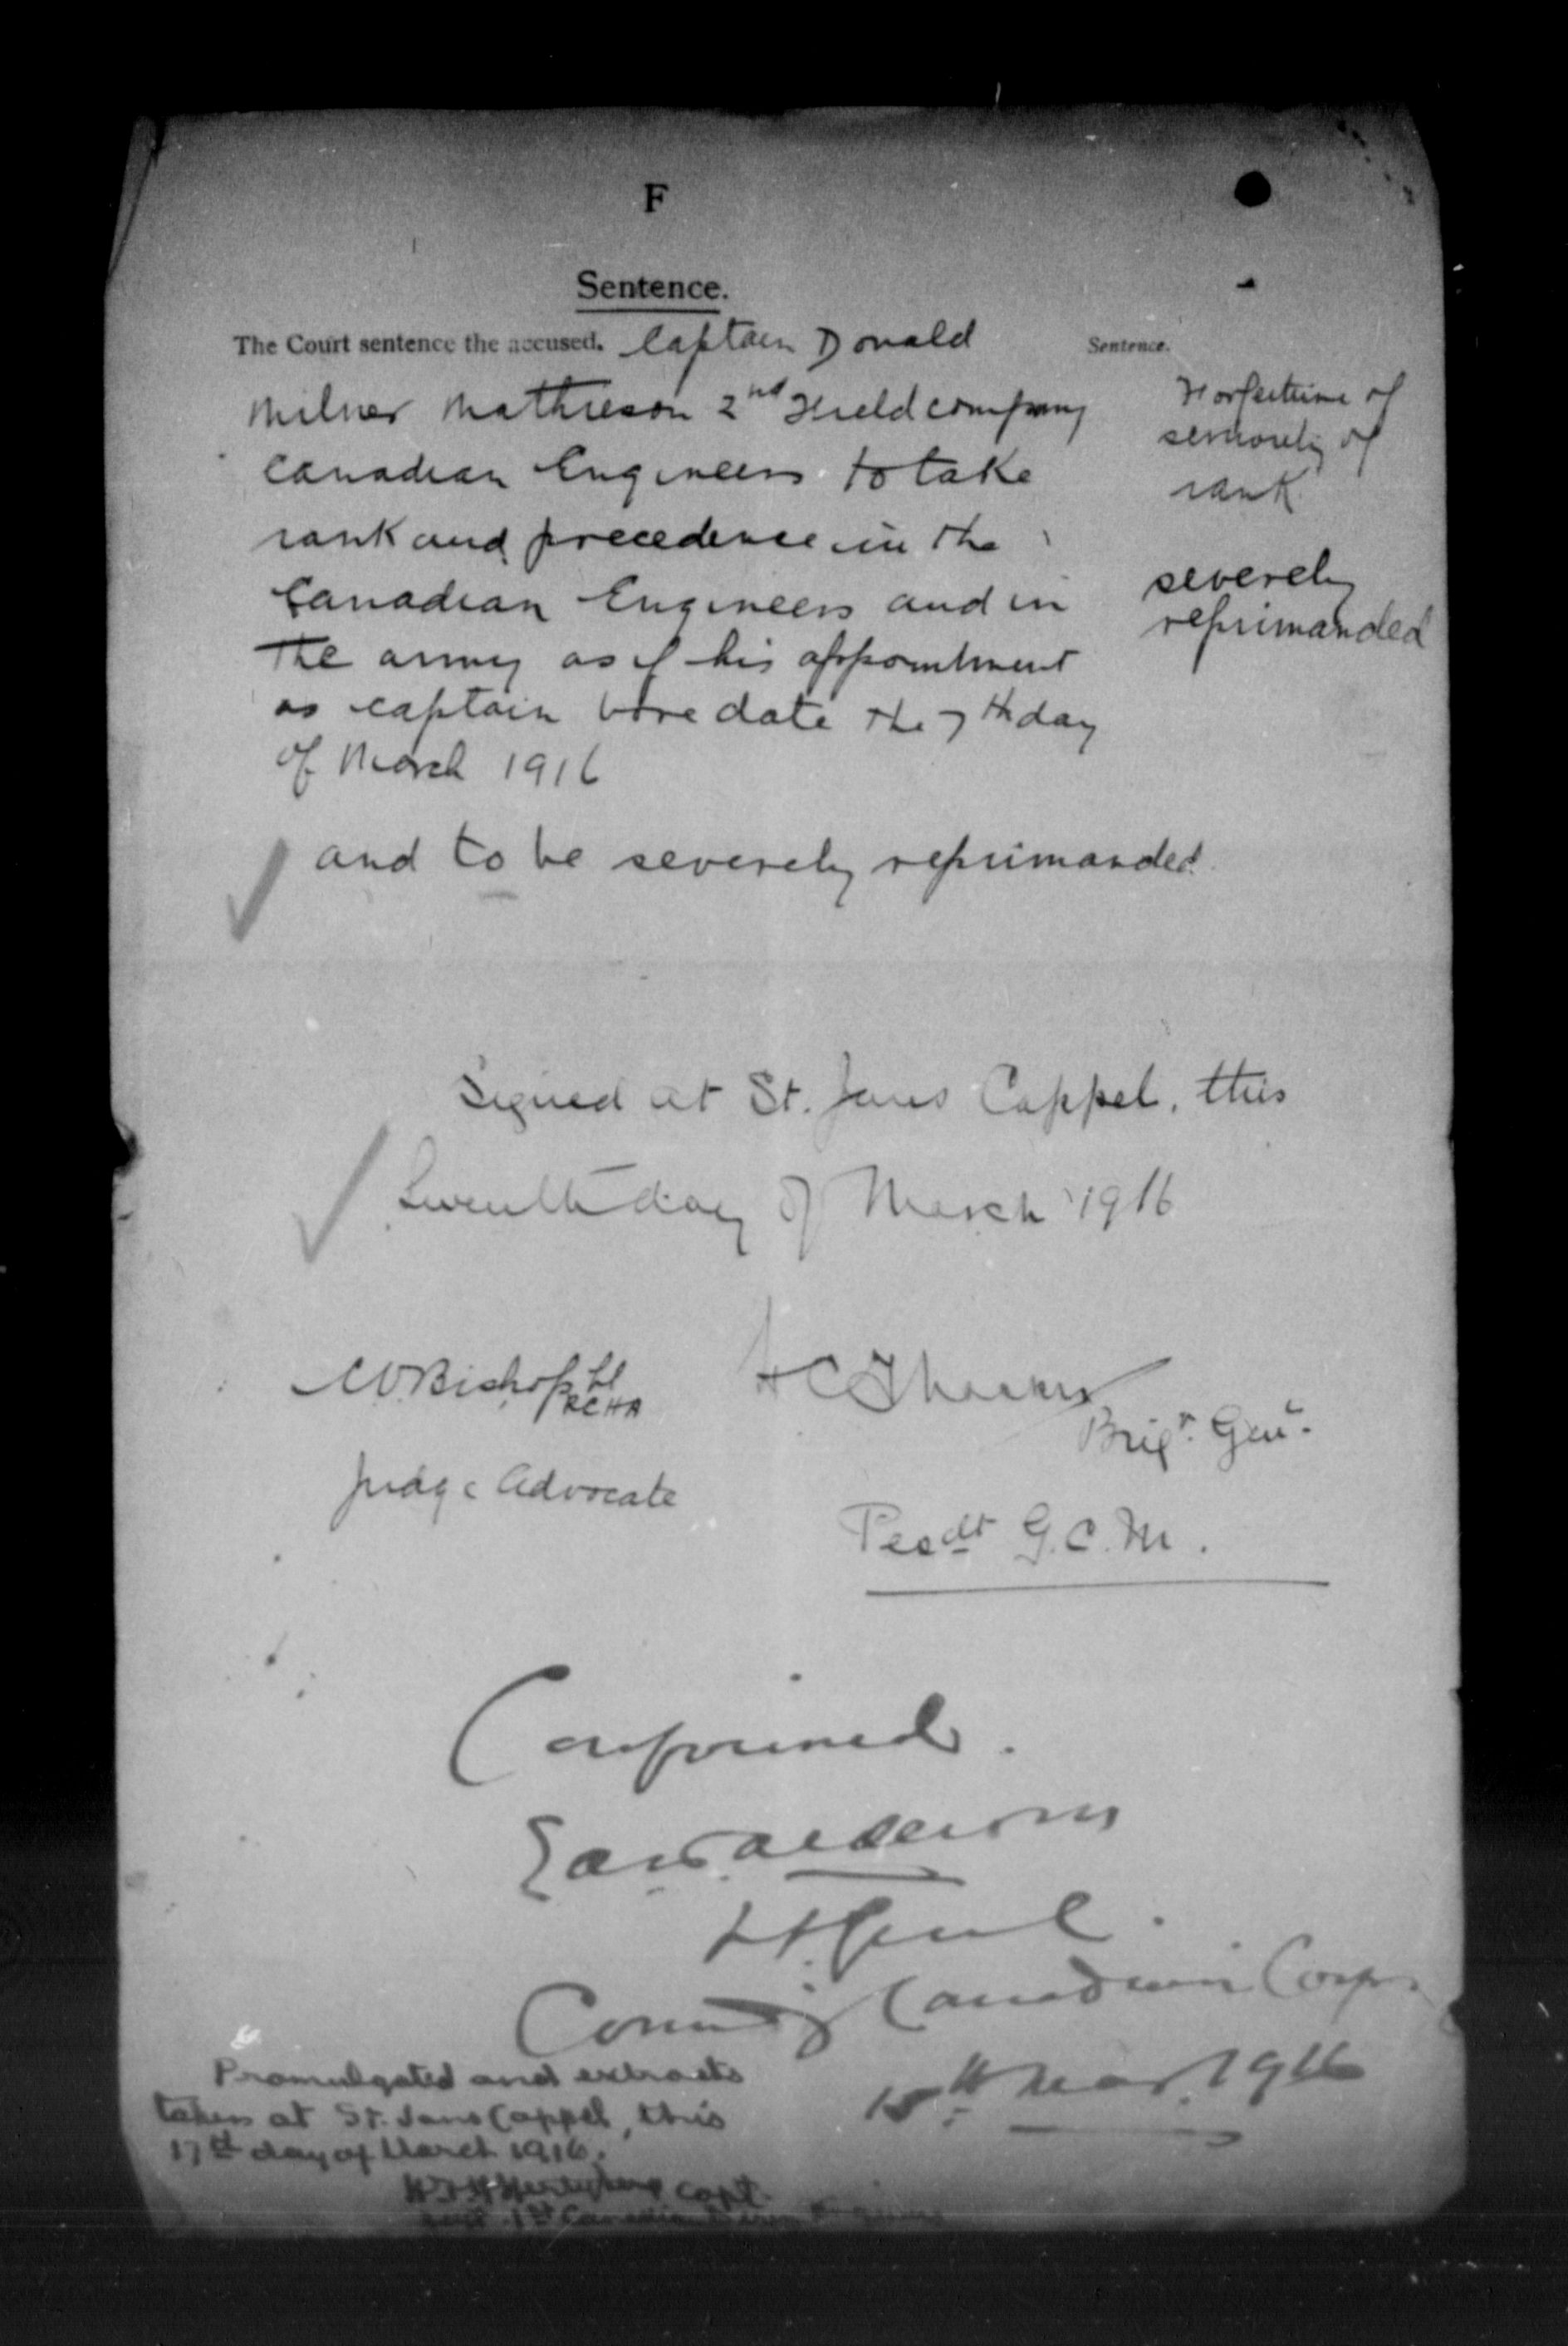 F
Sentence.
The Court sentence the accused. Captain Donald
Milner Mathieson 2nd Field company
Canadian Engineers to take
rank and precedence in the
Canadian Engineers and in
the army as if his appointment
as captain bore date the 7th day
of March 1916
and to be severely reprimanded
Sentence.
Forfeiture of
seniority of
rank
severely
reprimanded
Signed at St. Jans Cappel, this
Seventh day of March 1916
Bishop Lt
RCHA
Judge Advocate
HC Thacker
Brigr. Genl.
Presdt G.C.M.
Confirmed.
EAH Alderson
Lt Genl.
Comndg Canadian Corps.
15th Mar. 1916
Promulgated and extracts
taken at St. Jans Cappel, this
17th day of March 1916.
Capt.
1st Canadian